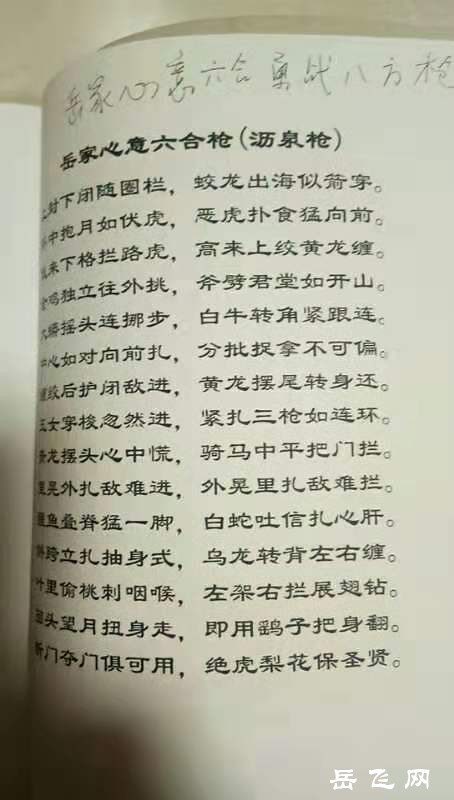 岳家心意六合勇战八方枪
岳家心意六合枪(沥泉枪)
上封下闭随圈栏, 蛟龙出海似箭穿。
中抱月如伏虎, 恶虎扑食猛向前。
来下格拦路虎, 高来上绞黄龙缠。
鸡独立往外挑, 斧劈君堂如开山。
摇头连挪步, 白牛转角紧跟连。
心如对向前扎, 分批捉拿不可偏。
绞后护闭敌进, 黄龙摆尾转身还。
玉女穿梭忽然进, 紧扎三枪如连环。
龙摆头心中慌, 骑马中平把门拦。
里晃外扎敌难进, 外晃里扎敌难拦。
鲤鱼叠脊猛一脚, 白蛇吐信扎心肝。
斜跨立扎抽身式, 乌龙转背左右缠。
叶里偷桃刺咽喉, 左架右拦展翅钻。
回头望月扭身走, 即用鹞子把身翻。
门夺门俱可用, 绝虎梨花保圣贤。
岳飞网